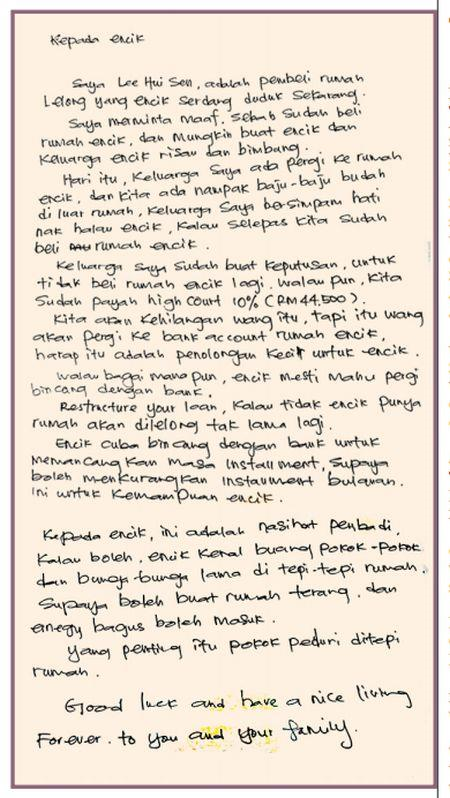 Kepada encik
Saya Lee Hui Sen, adalah pembeli rumah
Lelong yang encik Serdang duduk Sekarang.
Saya meminta maaf. Sebab Sudah beli
rumah encik, dan Mungkin buat encik dan
Keluarga encik risau dan bimbang.
Hari itu, Keluarga Saya ada pergi Ke rumah
encik, dan Kita ada nampak baju-baju budah
di luar rumah, Keluarga Saya bersimpam hati
nak halau encik, Kalau Selepas Kita Sudah
beli rumah encik.
Keluarga Saya Sudah buat Keputusan, untuk
tidak beli rumah encik lagi. Walau pun, Kita
Sudah payah high court 10% (RM 44,500).
Kita akan Kehilangan wang itu, tapi itu wang
akan pergi ke bank account rumah encik,
harap itu adalah penolongan Kecil untuk encik.
Walau bagai mana pun, encik mesti Mahu pergi
bincang dengan bank.
Restructure your loan, Kalau tidak encik punya
rumah akan dilelong tak lama lagi.
Encik cuba bincang dengan bank untuk
Memancangkan Masa Installment, Supaya
boleh menkurangkan Instaument bulanan.
Ini untuk Kemampuan encik.
Kepada encik, ini adalah nasihat peribadi,
Kalau boleh, encik Kenal buang pokok-pokok
dan bunga-bunga lama di tepi-tepi rumah.
Supaya boleh buat rumah terang, dan
enegy bagus boleh Masuk.
Yang penting itu pokok peduri ditepi
rumah.
Good luck and have a nice living
Forever. to you and your family.